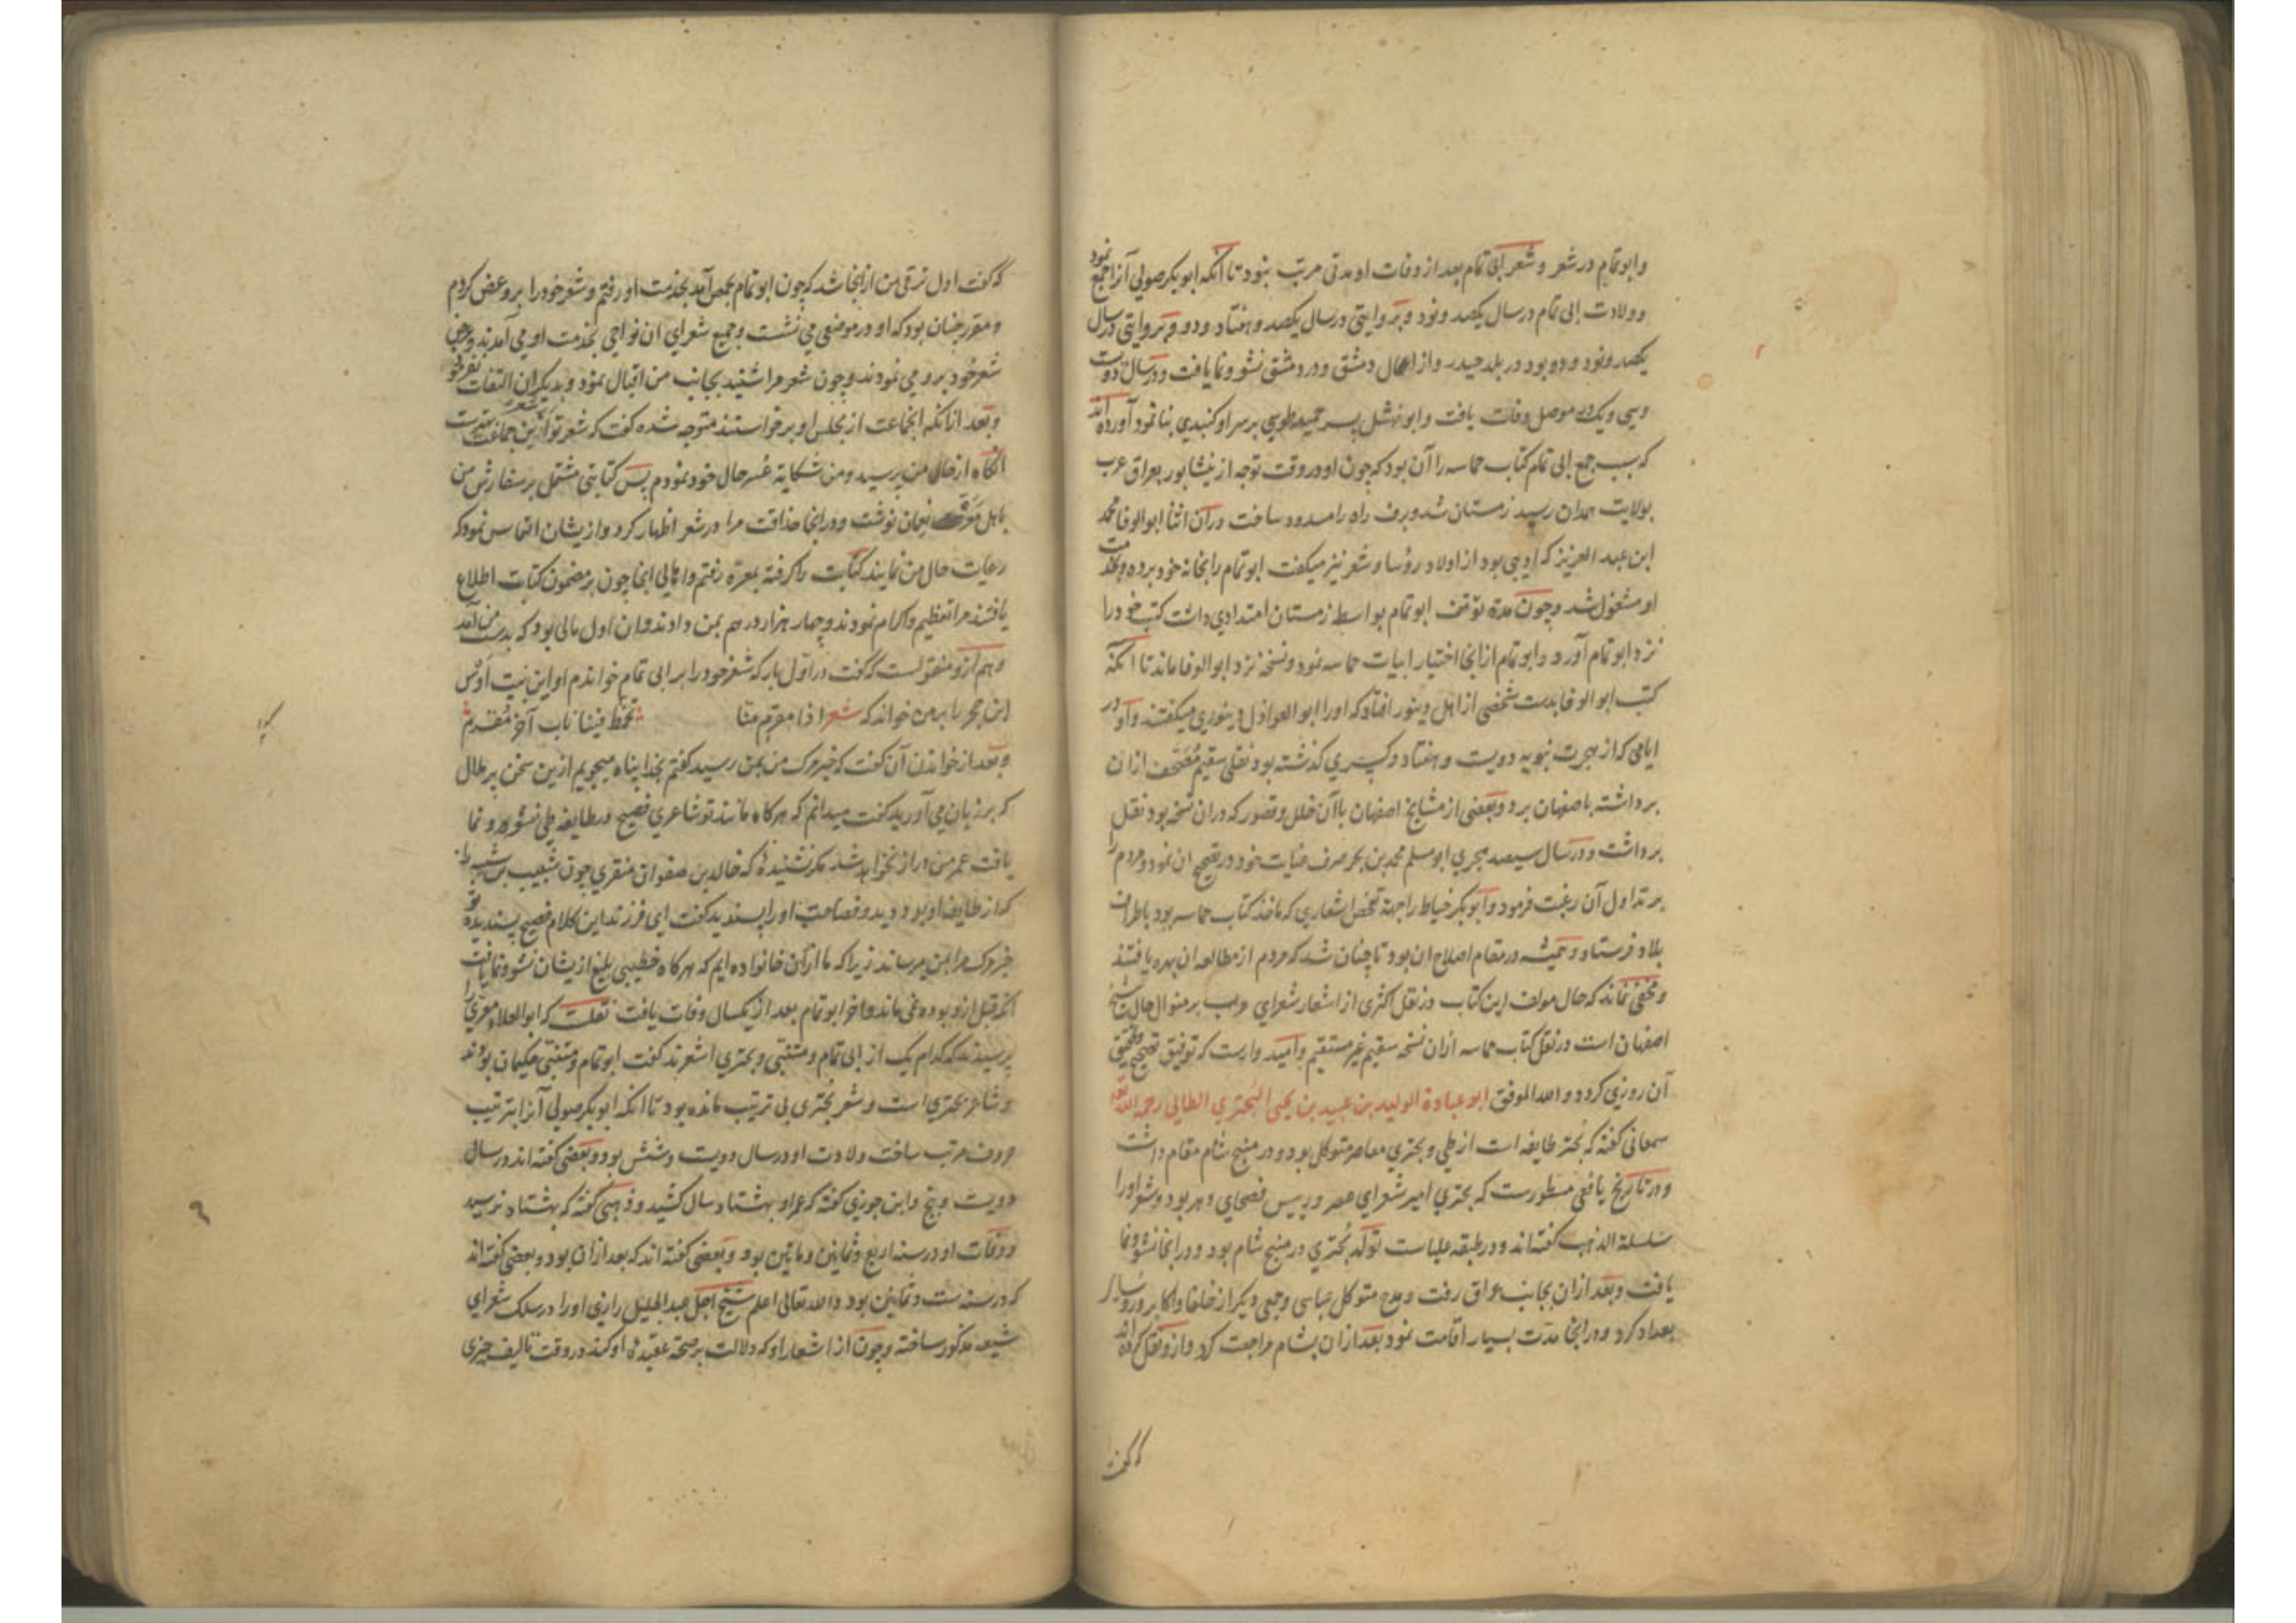 وابوتمام در شعر و شعر ابی تمام بعد از وفات او مدتی مرتب نبود تا آنکه ابوبکر صولی آنرا جمع نمود
وولادت ابی تمام در سال یکصد و نود و بروایتی در سال یکصد و هفتاد و دو و بروایتی در سال
یکصد ونود و دو بود در بلد حیدر و از اعمال دمشق و در دمشق نشو ونما یافت و در سال دویست
وسی ویک در موصل وفات یافت وابو نهشل پسر حمید طوسی بر سر او گنبدی بنا نمود آورده اند
که سبب جمع ابی تمام کتاب حماسه را آن بود که چون او در وقت توجه از نیشابور بعراق عرب
بولایت همدان رسید زمستان شد و برف راه را مسدود ساخت در آن اثنا ابو الوفا محمد
ابن عبد العزیز که ادیبی بود از اولاد رؤسا و شعر نیز میگفت ابوتمام را بخانه خود برده و بخدمت
او مشغول شد و چون مدة توقف ابوتمام بواسطه زمستان امتدادی داشت کتب خود را
نزد ابوتمام آورد و ابوتمام از انجا اختیار ابیات حماسه نمود و نسخه نزد ابوالوفا ماند تا آنکه
کتب ابو الوفا بدست شخصی از اهل دینور افتاد که او را ابو العواذل دینوری میگفتند و او در
ایامی که از هجرت نبویه دویست و هفتاد و کسری گذشته بود نقلی سقیم مصحف ازان
برداشته باصفهان برد و بعضی از مشایخ اصفهان باآن خلل و قصور که دران نسخه بود نقل
برداشت و در سال سیصد هجری ابو مسلم محمد بن بحر صرف عنایت خود در تصحیح ان نمود و مردم را
بر تداول آن رغبت فرمود و ابوبکر خیاط را جهة تفحص اشعاری که ماخذ کتاب حماسه بود باطراف
بلاد فرستاد و همیشه در مقام اصلاح ان بود تا چنان شد که مردم از مطالعه ان بهره یافتند
و مخفی نماند که حال مولف این کتاب در نقل اکثری از اشعار شعرای عرب بر منوال حال مشایخ
اصفهان است در نقل کتاب حماسه ازان نسخه سقیم غیر مستقیم و امید وارست که توفیق تصحیح و تحقیق
آن روزی گردد و الله الموفق ابو عبادة الولید بن عبید بن یحیی البحتری الطائی رحمه الله تعالی
سمعانی گفته که بحتر طایفه است از طی و بحتری معاصر متوکل بود و در منبج شام مقام داشت
و در تاریخ یافعی مسطورست که بحتری امیر شعرای عصر و رییس فصحای دهر بود و شعر او را
سلسلة الذهب گفته اند و در طبقه علیاست تولد بحتری در منبج شام بود و در انجا نشو ونما
یافت و بعد ازان بجانب عراق رفت و مدح متوکل عباسی و جمعی دیگر از خلفا و اکابر و رؤسا
بغداد کرد و در انجا مدت بسیار اقامت نمود بعد ازان بشام مراجعت کرد و ازو نقل کرده اند
که گفت
که گفت اول ترقی من از انجا شد که چون ابوتمام بحمص آمد بخدمت او رفتم و شعر خود را برو عرض کردم
و مقرر چنان بود که او در موضعی می نشست و جمیع شعرای ان نواحی بخدمت او می آمدند و عرض
شعر خود برو می نمودند و چون شعر مرا شنید بجانب من اقبال نمود و بدیگران التفات نفرمود
و بعد ازانکه انجماعت از مجلس او برخواستند متوجه شده گفت که شعر تو ازین جماعت بهترست
انگاه از حال من پرسید و من شکایة عسر حال خود نمودم پس کتابتی مشتمل بر سفارش من
باهل معرة نعمان نوشت و در انجا حذاقت مرا در شعر اظهار کرد و از یشان التماس نمود که
رعایت حال من نمایند کتابت را گرفته بمعرة رفتم و اهالی انجا چون بر مضمون کتابت اطلاع
یافتند مرا تعظیم و اکرام نمودند و چهار هزار درهم بمن دادند وان اول مالی بود که بدست من آمد
و هم ازو منقولست که گفت در اول بار که شعر خود را بر ابی تمام خواندم او این بیت اوس
ابن حجر را بر من خواند که شعر اذا مقرم منا تخمط فینا ناب آخر مقدم
و بعد از خواندن آن گفت که خبر مرگ من بمن رسید گفتم بخدا پناه میجویم ازین سخن پر ملال
که بر زبان می آورید گفت میدانم که هرگاه مانند تو شاعری فصیح در طایفه طی نشو و نما
یافت عمر من دراز نخواهد شد مگر نشنیدهٔ که خالد بن صفوان منقری چون شبیب بن شبه را
که از طایفه او بود دید و فصاحت او را پسندید گفت ای فرزند این کلام فصیح پسندیده تو
خبر مرگ مرا بمن میرساند زیرا که ما ازان خانواده ایم که هرگاه خطیبی بلیغ از یشان نشو ونما یافت
آنکه قبل ازو بوده نمی ماند و اخر ابوتمام بعد از یکسال وفات یافت نقلست که ابو العلاء معری را
پرسیدند که کدام یک از ابی تمام و متنبی و بحتری اشعرند گفت ابوتمام و متنبی حکیمان بودند
و شاعر بحتری است و شعر بحتری بی ترتیب مانده بود تا انکه ابوبکر صولی آنرا بترتیب
حروف مرتب ساخت ولادت او در سال دویست و شش بود و بعضی گفته اند در سال
دویست و پنج و ابن جوزی گفته که عمر او بهشتاد سال کشید و ذهبی گفته که بهشتاد نرسید
و وفات او در سنه اربع و ثمانین و ماتین بود و بعضی گفته اند که بعد ازان بود و بعضی گفته اند
که در سنه ست و ثمانین بود و الله تعالی اعلم شیخ اجل عبد الجلیل رازی او را در سلک شعرای
شیعه مذکور ساخته و چون از اشعار او که دلالت بر صحة عقیدهٔ او کند در وقت تالیف چیزی